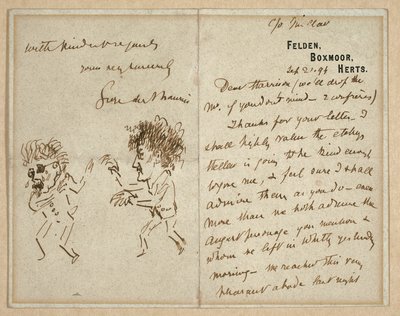 with kindest regards
yours very sincerely
George du Maurier
c/o
FELDEN,
BOXMOOR,
HERTS.
Sep 21. 94
Dear Harrison (we'll drop the
Mr. if you don't mind —
Thanks for your letter. I
shall highly value the etching
Heller is going to be kind enough
to give me, & feel sure I shall
admire them as you do — even
more than we both admire the
august personage you mention &
whom we left in Whitby yesterday
morning — we reached this very
pleasant abode last night